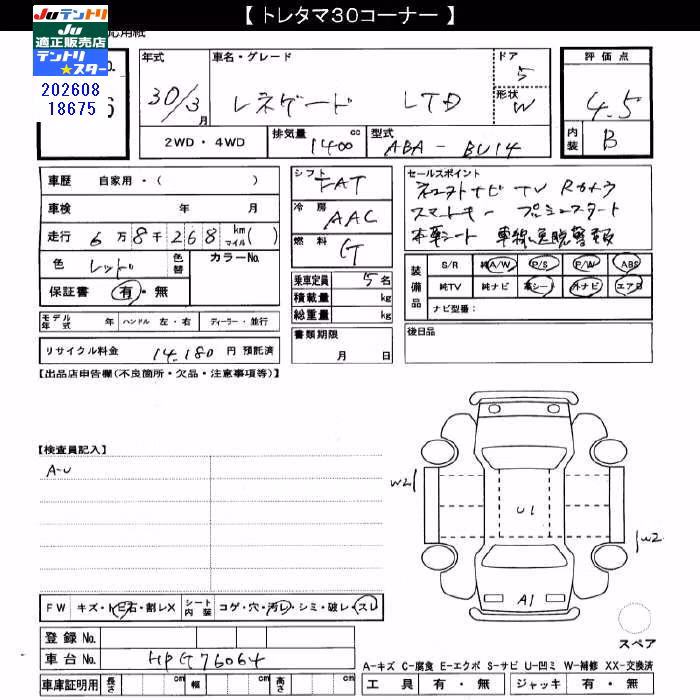 【 トレタマ30コーナー 】
Juテントリ
Ju
適正販売店
テントリ
★スター
応用紙
No.
202608
18675
年式
30/3月
車名・グレード
レネゲード LTD
ドア
5
形状
W
評価点
4.5
内装
B
2WD・4WD
排気量
1400 cc
型式
ABA - BU14
車歴 自家用・( )
車検 年 月
走行 6万8千268 km マイル ( )
色 レッド 色替 カラーNo.
保証書 有・無
シフト
FAT
冷房
AAC
燃料
G
乗車定員 5 名
積載量 kg
総重量 kg
書類期限
月 日
セールスポイント
ネコストナビ TV Rカメラ
スマートキー プッシュスタート
本革シート 車線逸脱警報
装備品
S/R 純A/W P/S P/W ABS
純TV 純ナビ 革シート 外ナビ エアB
ナビ型番:
後日品
モデル年式 年 ハンドル 左・右 ディーラー・並行
リサイクル料金 14,180 円 預託済
【出品店申告欄(不良箇所・欠品・注意事項等)】
【検査員記入】
A-U
W2
U1
W2
A1
スペア
FW キズ・トビ石・割レX シート内装 コゲ・穴・汚レ・シミ・破レ・スレ
登録No.
車台No. HPG76064
車庫証明用 長さ cm 幅 cm 高さ cm
A-キズ C-腐食 E-エクボ S-サビ U-凹ミ W-補修 XX-交換済
工具 有・無 ジャッキ 有・無